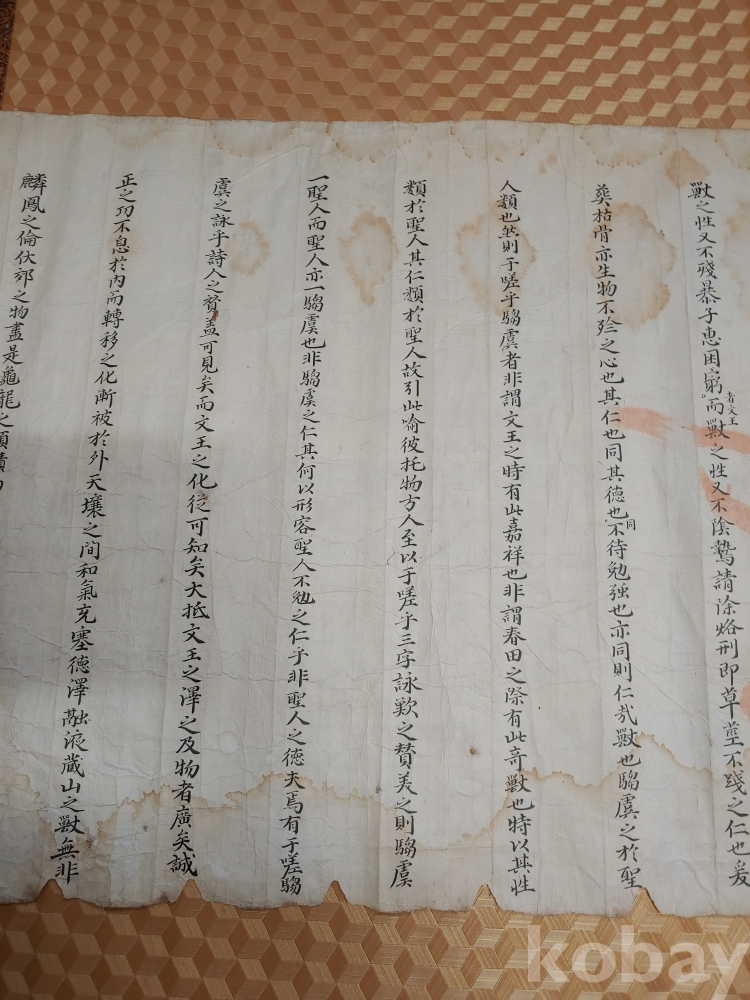 獸之性又不殘暴子惠困窮而獸之性又不陰鷙請除烙刑即草莖不踐之仁也爰
者文王
葬枯骨亦生物不殄之心也其仁也同其德也不待勉强也亦同則仁哉獸也騶虞之於聖
同
人類也然則于嗟乎騶虞者非謂文王之時有此嘉祥也非謂春田之際有此奇獸也特以其性
類於聖人其仁類於聖人故引此喩彼托物方人至以于嗟乎三字詠歎之賛美之則騶虞
一聖人而聖人亦一騶虞也非騶虞之仁其何以形容聖人不勉之仁乎非聖人之德夫焉有于嗟騶
虞之詠乎詩人之賛盖可見矣而文王之化從可知矣大抵文王之澤之及物者廣矣誠
正之功不息於內而轉移之化漸被於外天壤之间和氣充塞德澤融液蔵山之獸無非
麟鳳之倫伏郊之物盡是龜龍之類
kobay